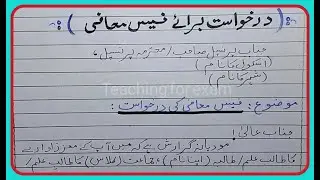 درخواست برائے فیس معافی
جناب پرنسپل صاحب / محترمہ پرنسپل،
(اسکول کا نام)
(شہر کا نام)
Teachingforexam
موضوع: فیس معافی کی درخواست:
جناب عالی!
مودبانہ گزارش ہے کہ میں آپ کے معزز ادارے
کا طالب علم / طالبہ (اپنا نام) جماعت (کلاس) کا طالب علم /